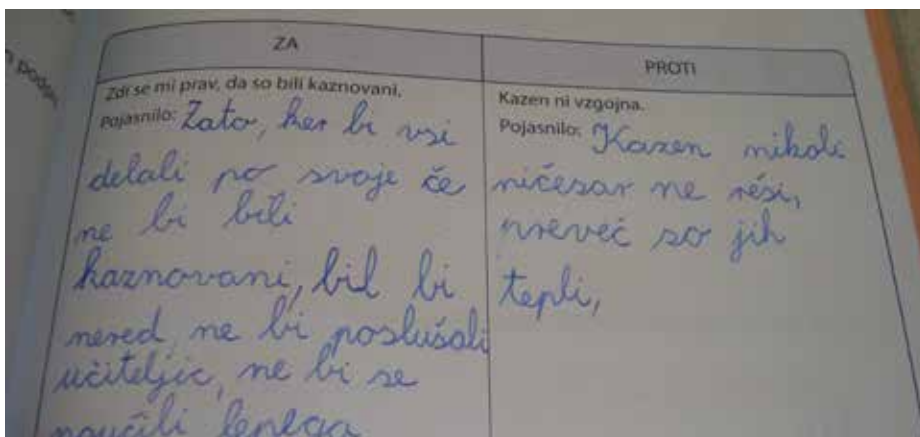 ZA
Zdi se mi prav, da so bili kaznovani.
Pojasnilo: Zato, ker bi vsi
delali po svoje če
ne bi bili
kaznovani, bil bi
nered, ne bi poslušali
učiteljic, ne bi se
naučili lepega
PROTI
Kazen ni vzgojna.
Pojasnilo: Kazen nikoli
ničesar ne réši,
preveč so jih
tepli,